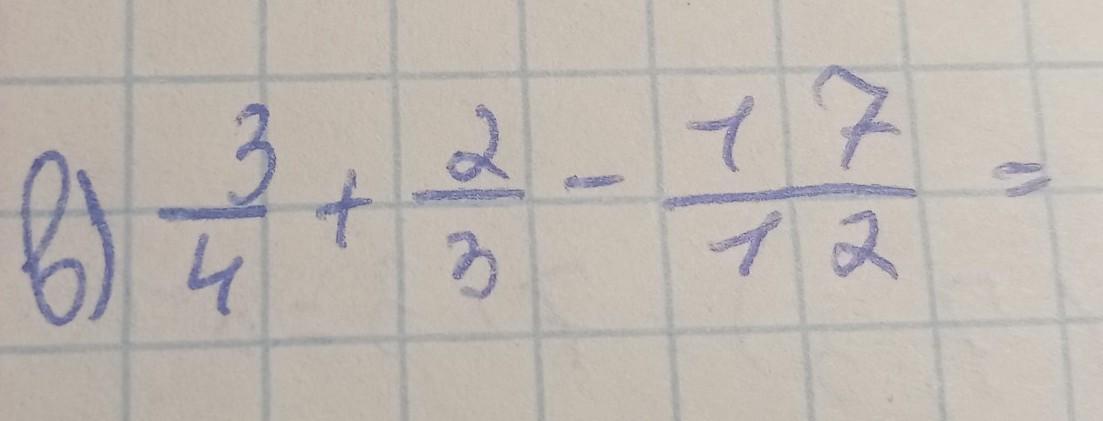 в) 3/4 + 2/3 - 17/12 =